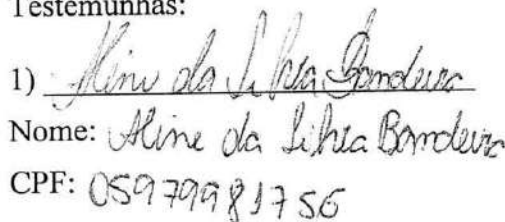 Testemunhas:
1) Aline da Silva Bandeira
Nome: Aline da Silva Bandeira
CPF: 05979981756